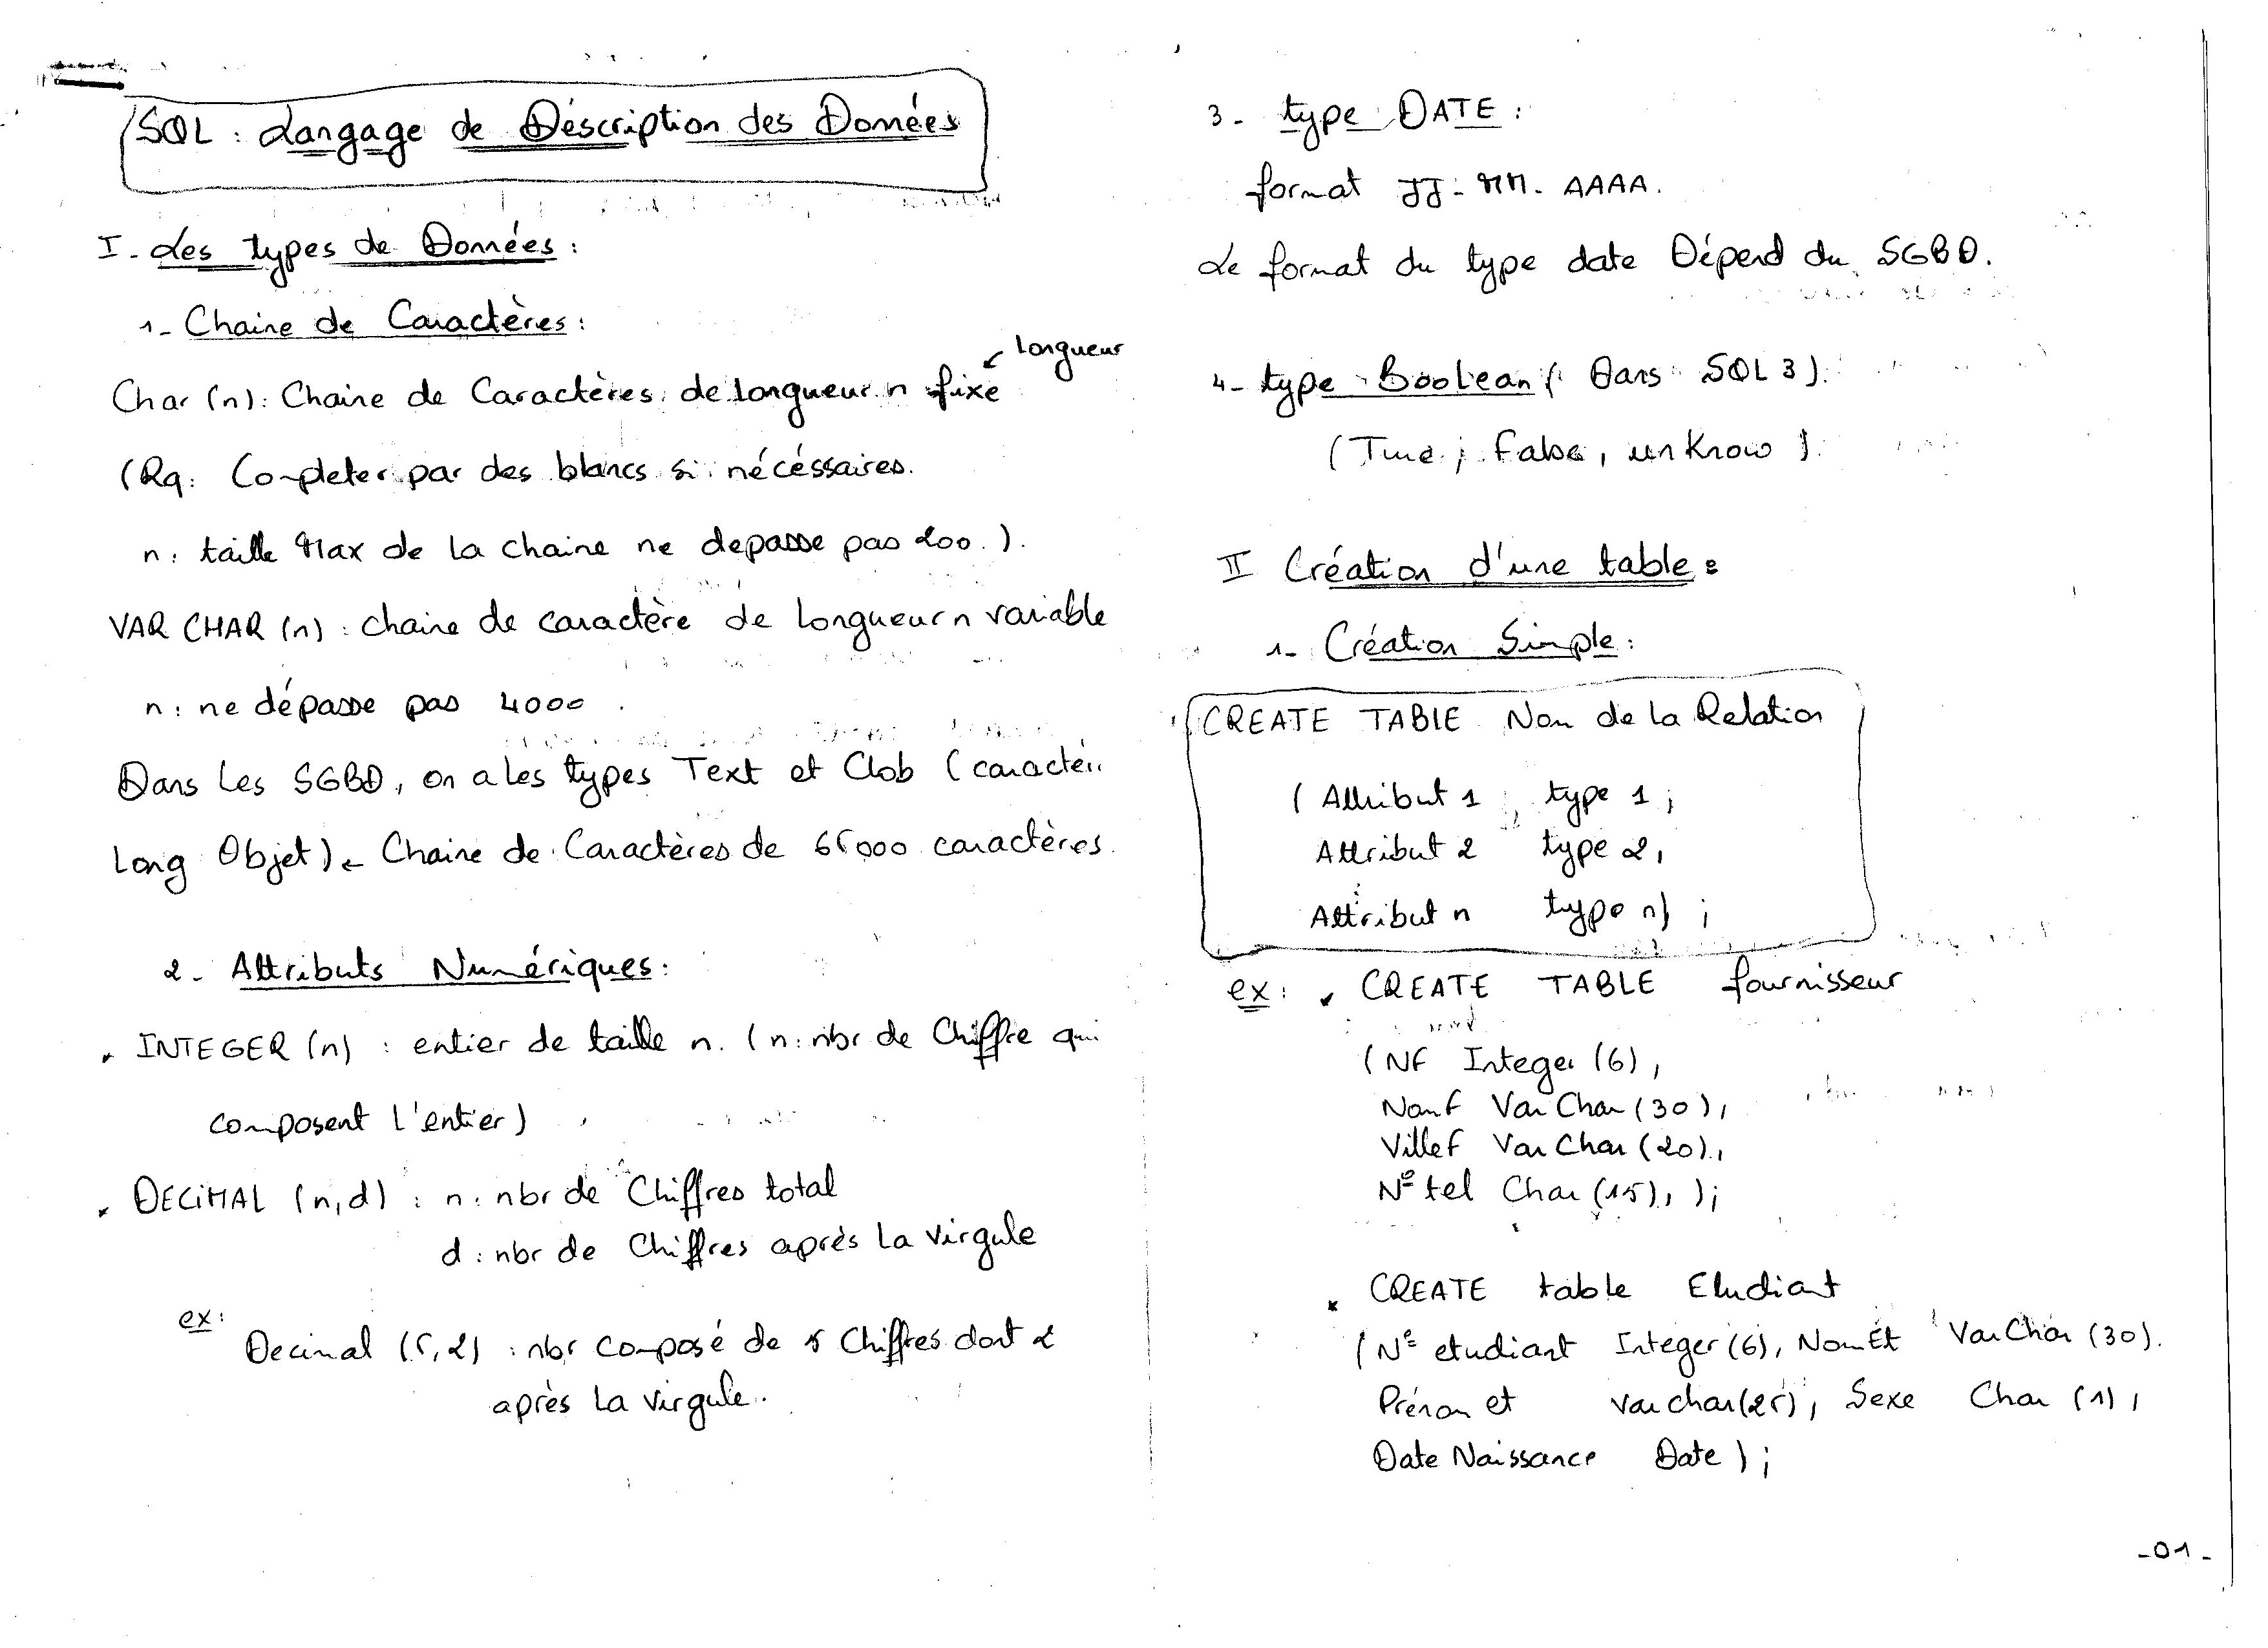 SQL : Langage de Déscription des Données
I - Les types de Données :
1- Chaine de Caractères :
longueur
Char (n) : Chaine de Caractères de longueur n fixe
(Rq : Completer par des blancs si nécéssaires.
n : taille Max de la chaine ne depasse pas 200.).
VAR CHAR (n) : chaine de caractère de longueur n variable
n : ne dépasse pas 4000.
Dans les SGBD, on a les types Text et Clob (caractèr
Long Objet) Chaine de Caractères de 65000 caractères.
2 - Attributs Numériques :
INTEGER (n) : entier de taille n. (n : nbr de Chiffre qui
composent l'entier)
DECIMAL (n,d) : n : nbr de Chiffres total
d : nbr de Chiffres après la virgule
ex :
Decimal (5,2) : nbr composé de 5 Chiffres dont 2
après la virgule.
3 - type DATE :
format JJ-MM-AAAA.
Le format du type date Dépend du SGBD.
4- type Boolean (Dans SQL 3).
(True ; False, unKnow).
II Création d'une table :
1- Création Simple :
CREATE TABLE Nom de la Relation
(Attribut 1 type 1 ;
Attribut 2 type 2,
⋮
Attribut n type n) ;
ex : CREATE TABLE fournisseur
(NF Integer (6),
NomF VarChar (30),
VilleF VarChar (20),
N° tel Char (15), );
CREATE table Etudiant
(N° etudiant Integer (6), NomEt VarChar (30).
Prénom et varchar(25), Sexe Char (1),
Date Naissance Date ) ;
-01-